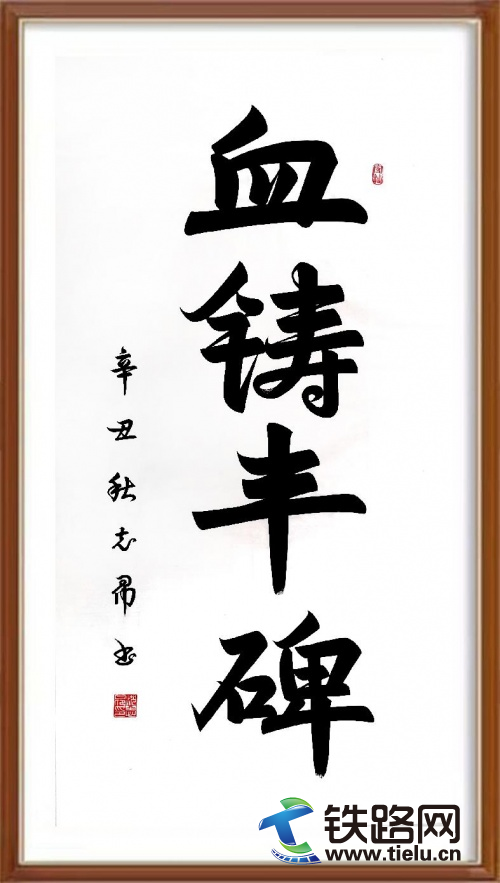 血铸丰碑
辛丑秋志勇书
铁路网
www.tielu.cn